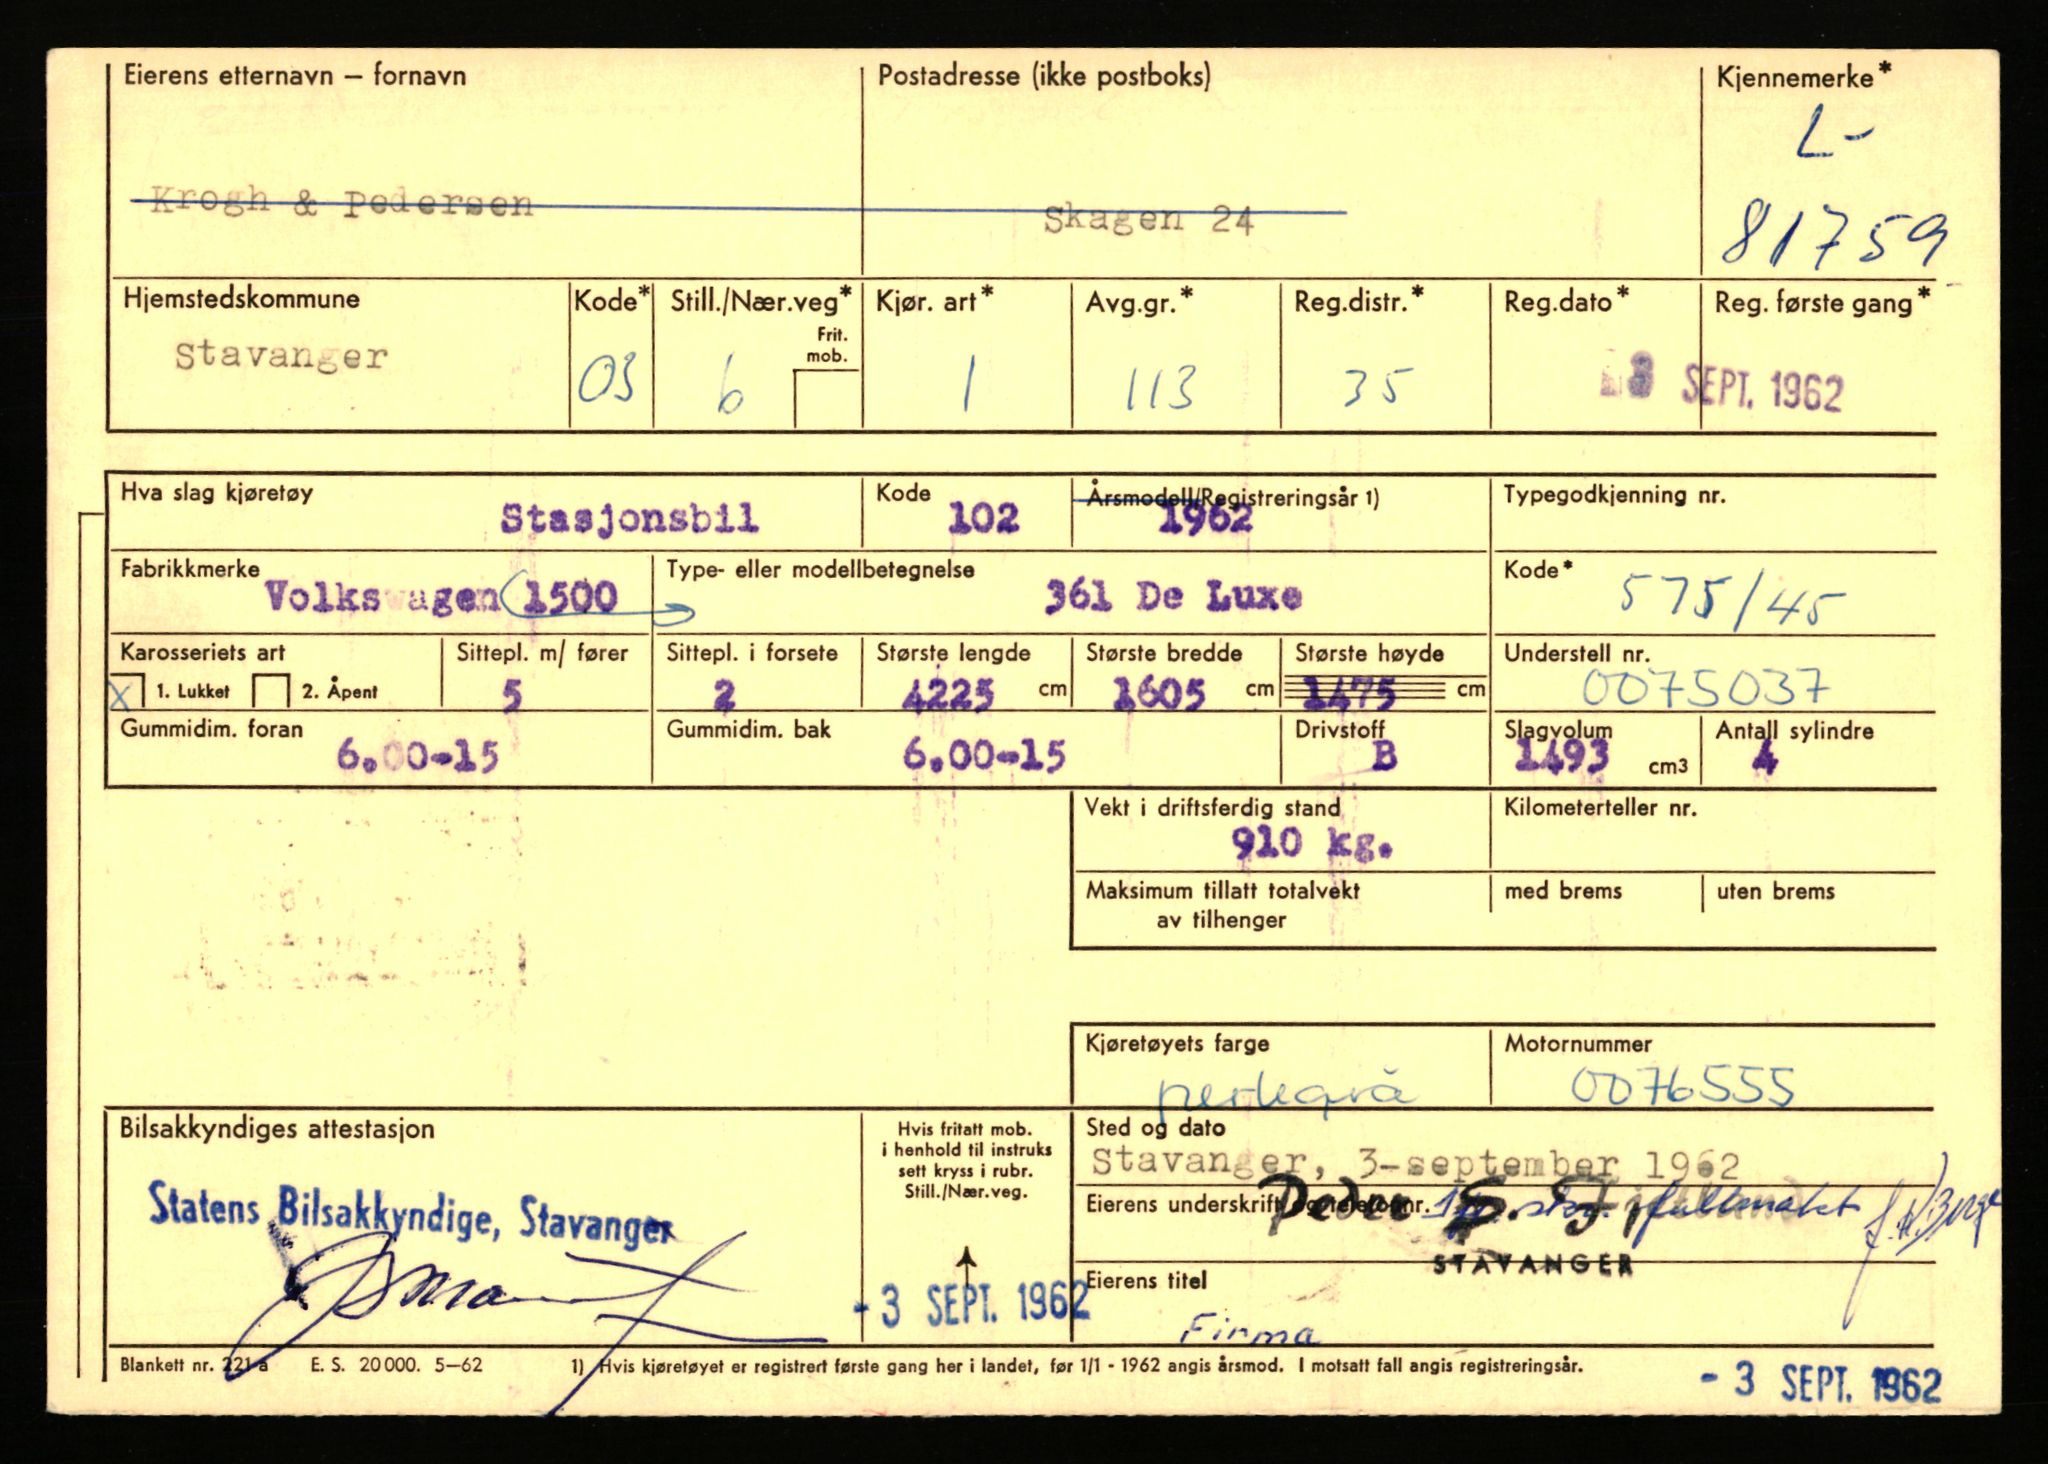 Eierens etternavn – fornavn Postadresse (ikke postboks) Kjennemerke*
L-
Krogh & Pedersen Skagen 24 81759
Hjemstedskommune Kode* Still./Nær.veg* Kjør. art* Avg.gr.* Reg.distr.* Reg.dato* Reg. første gang*
Frit.
mob.
Stavanger 03 6 1 113 35 3 SEPT. 1962
Hva slag kjøretøy Kode Årsmodell/Registreringsår 1) Typegodkjenning nr.
Stasjonsbil 102 1962
Fabrikkmerke Type- eller modellbetegnelse Kode*
Volkswagen (1500 361 De Luxe 575/45
Karosseriets art Sittepl. m/ fører Sittepl. i forsete Største lengde Største bredde Største høyde Understell nr.
X 1. Lukket 2. Åpent 5 2 4225 cm 1605 cm 1475 cm 0075037
Gummidim. foran Gummidim. bak Drivstoff Slagvolum Antall sylindre
6.00-15 6.00-15 B 1493 cm3 4
Vekt i driftsferdig stand Kilometerteller nr.
910 kg.
Maksimum tillatt totalvekt med brems uten brems
av tilhenger
Kjøretøyets farge Motornummer
perlegrå 0076555
Bilsakkyndiges attestasjon Hvis fritatt mob. Sted og dato
i henhold til instruks
sett kryss i rubr.
Still./Nær.veg.
Stavanger, 3-september 1962
Eierens underskrift og telefonnr.
Peder fullmakt
Statens Bilsakkyndige, Stavanger
STAVANGER
Eierens titel
- 3 SEPT. 1962
Firma
Blankett nr. 221 a E. S. 20 000. 5–62 1) Hvis kjøretøyet er registrert første gang her i landet, før 1/1 - 1962 angis årsmod. I motsatt fall angis registreringsår.
- 3 SEPT. 1962